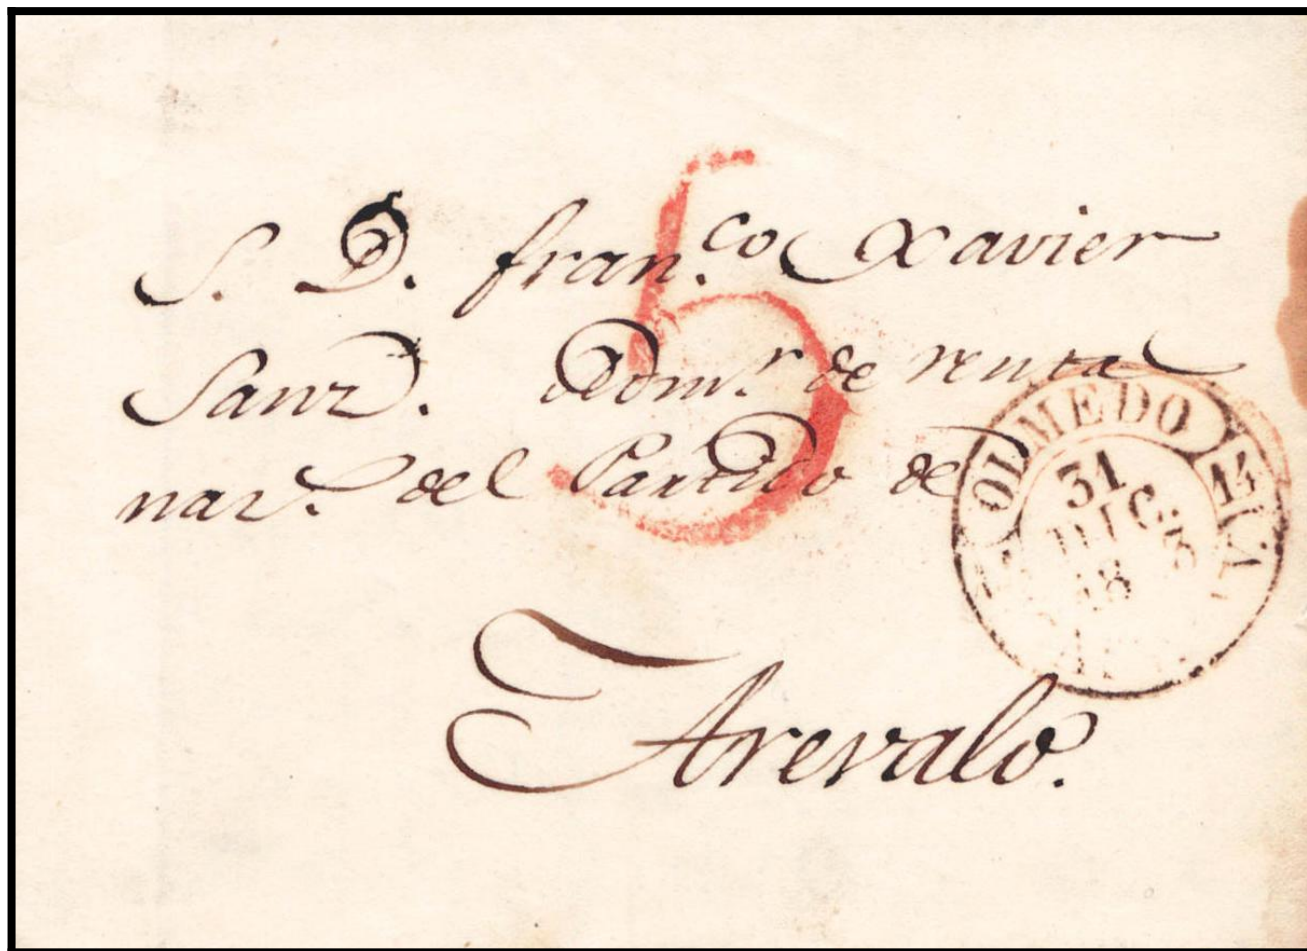 S. D. Fran.co Xavier
Sanz. Adom.r de renta
nas. del Partido de
Arevalo.
5
OLMEDO 14
31
DIC.
18